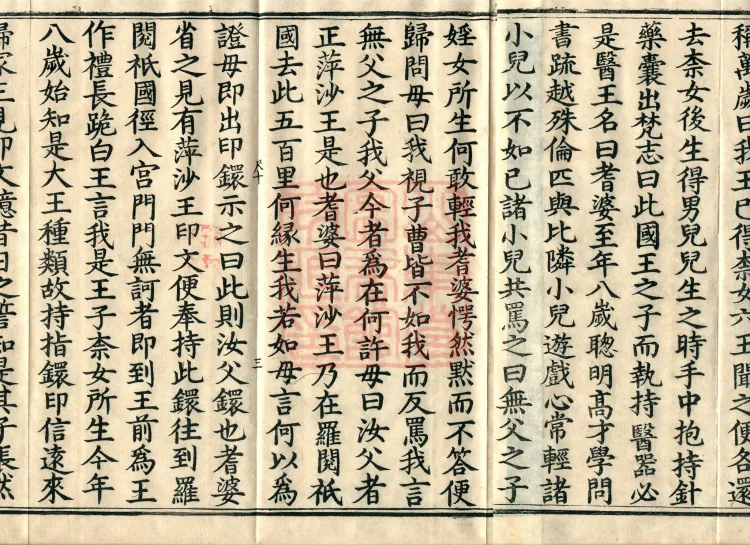 稱萬歲曰我王已得柰女六王聞之便各還
去柰女後生得男兒兒生之時手中抱持針
藥囊出梵志曰此國王之子而執持醫器必
是醫王名曰耆婆至年八歲聰明高才學問
書疏越殊倫匹與比隣小兒遊戲心常輕諸
小兒以不如己諸小兒共罵之曰無父之子
婬女所生何敢輕我耆婆愕然默而不答便
歸問母曰我視子曹皆不如我而反罵我言
無父之子我父今者為在何許母曰汝父者
正萍沙王是也耆婆曰萍沙王乃在羅閱祇
國去此五百里何緣生我若如母言何以為
三
證母即出印鐶示之曰此則汝父鐶也耆婆
省之見有萍沙王印文便奉持此鐶往到羅
閱祇國徑入宮門門無訶者即到王前為王
作禮長跪白王言我是王子柰女所生今年
八歲始知是大王種類故持指鐶印信遠來
歸家王見印文憶昔日之誓知是其子悵然